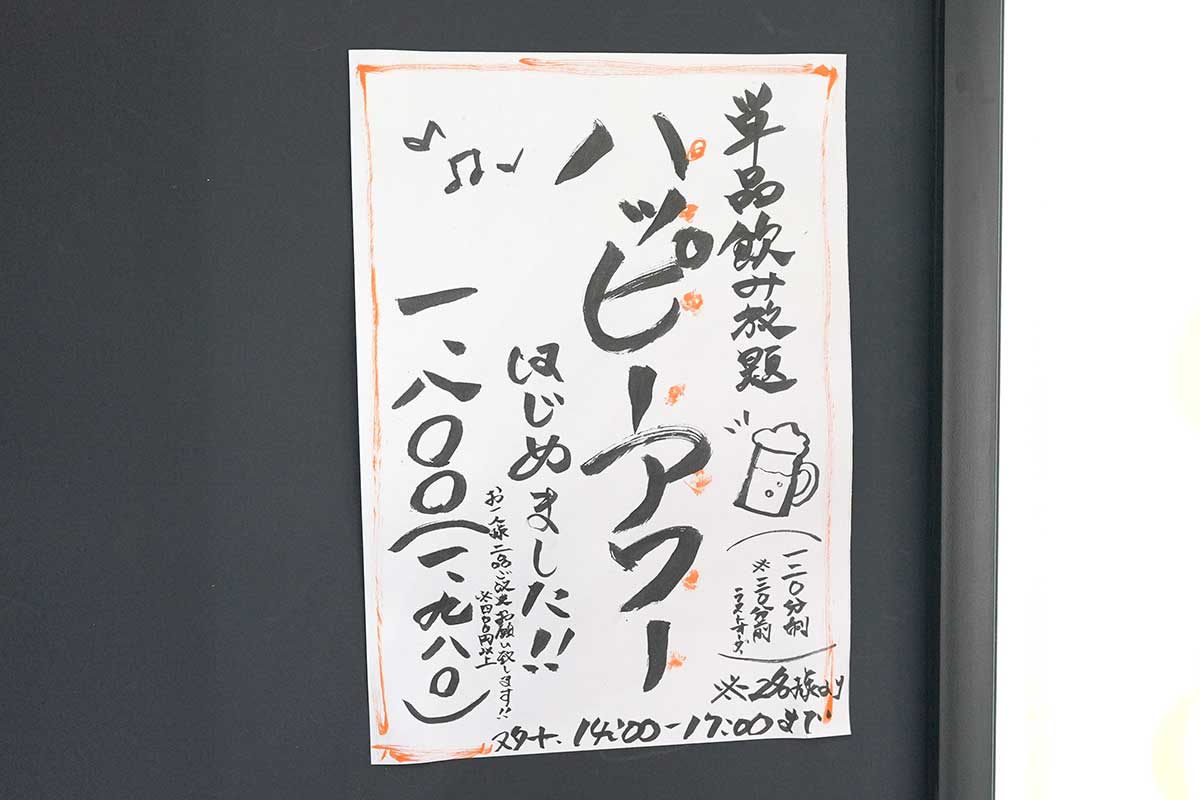 単品飲み放題
(一二〇分制
※三〇分前
ラストオーダー)
※2名様より
ハッピーアワー
はじめました!!
お一人様二品ご注文お願い致します!!
※四〇〇円以上
一、八〇〇(一、九八〇)
スタート、14:00-17:00まで